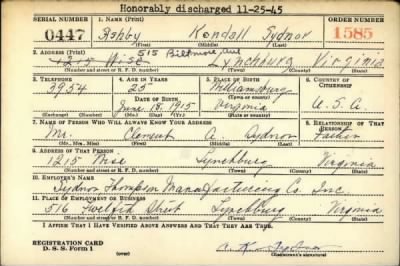 Honorably discharged 11-25-45
SERIAL NUMBER 1. NAME (Print) ORDER NUMBER
0447 Ashby Kendall Sydnor 1585
(First) (Middle) (Last)
2. ADDRESS (Print) 515 Biltmore Ave
1215 Wise Lynchburg Virginia
(Number and street or R. F. D. number) (Town) (County) (State)
3. TELEPHONE 4. AGE IN YEARS 5. PLACE OF BIRTH 6. COUNTRY OF CITIZENSHIP
3954 25 Williamsburg
DATE OF BIRTH (Town or county)
June 18, 1915 Virginia U. S. A.
(Exchange) (Number) (Mo.) (Day) (Yr.) (State or country)
7. NAME OF PERSON WHO WILL ALWAYS KNOW YOUR ADDRESS RELATIONSHIP OF THAT PERSON
Mr. Clement A. Sydnor Father
(Mr., Mrs., Miss) (First) (Middle) (Last)
8. ADDRESS OF THAT PERSON
1215 Wise Lynchburg Virginia
(Number and street or R. F. D. number) (Town) (County) (State)
10. EMPLOYER'S NAME
Sydnor Thompson Manufacturing Co. Inc
11. PLACE OF EMPLOYMENT OR BUSINESS
516 Twelfth Street Lynchburg Virginia
(Number and street or R. F. D. number) (Town) (County) (State)
I AFFIRM THAT I HAVE VERIFIED ABOVE ANSWERS AND THAT THEY ARE TRUE.
REGISTRATION CARD
D. S. S. Form 1 (over) A. K. Sydnor
(Registrant's signature)